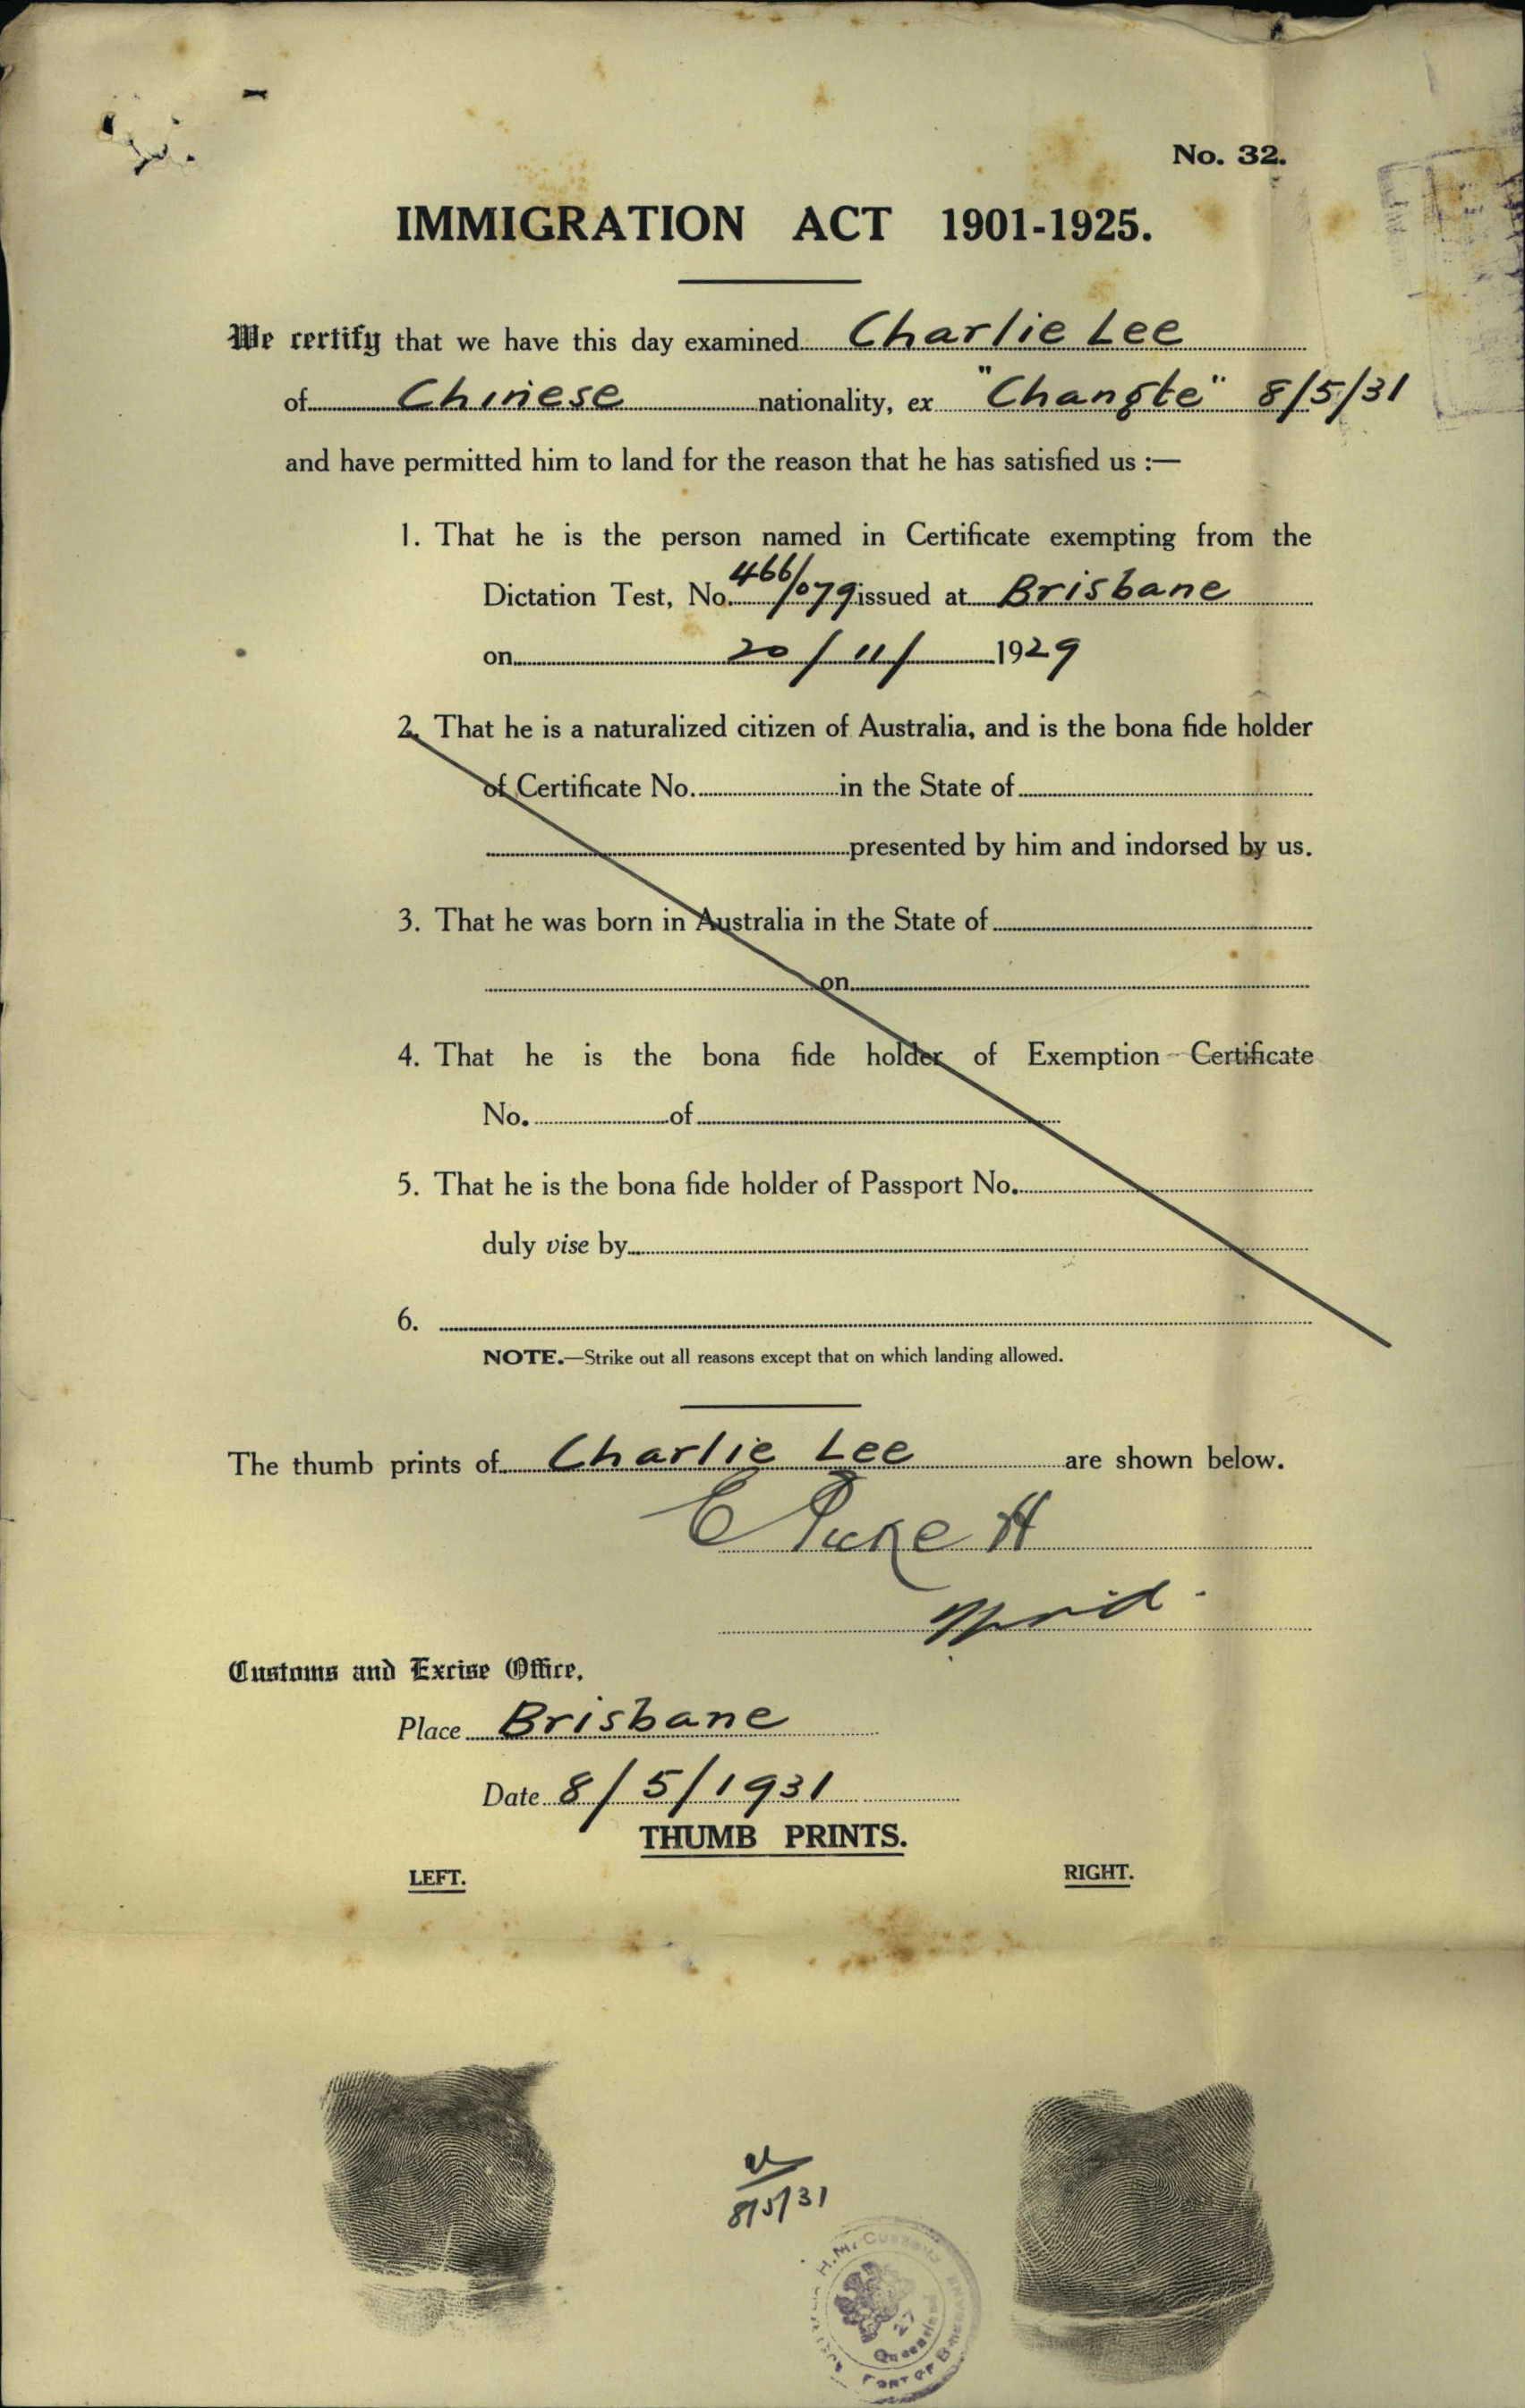 No. 32.
IMMIGRATION ACT 1901-1925.
We certify that we have this day examined Charlie Lee
of Chinese nationality, ex "Changte" 8/5/31
and have permitted him to land for the reason that he has satisfied us :—
1. That he is the person named in Certificate exempting from the
Dictation Test, No. 466/079 issued at Brisbane
on 20/11/1929
2. That he is a naturalized citizen of Australia, and is the bona fide holder
of Certificate No. in the State of
presented by him and indorsed by us.
3. That he was born in Australia in the State of
on
4. That he is the bona fide holder of Exemption Certificate
No. of
5. That he is the bona fide holder of Passport No.
duly vise by
6.
NOTE.—Strike out all reasons except that on which landing allowed.
The thumb prints of Charlie Lee are shown below.
Customs and Excise Office,
Place Brisbane
Date 8/5/1931
THUMB PRINTS.
LEFT. RIGHT.
8/5/31
H.M. Customs
27
Queensland
Port of Brisbane